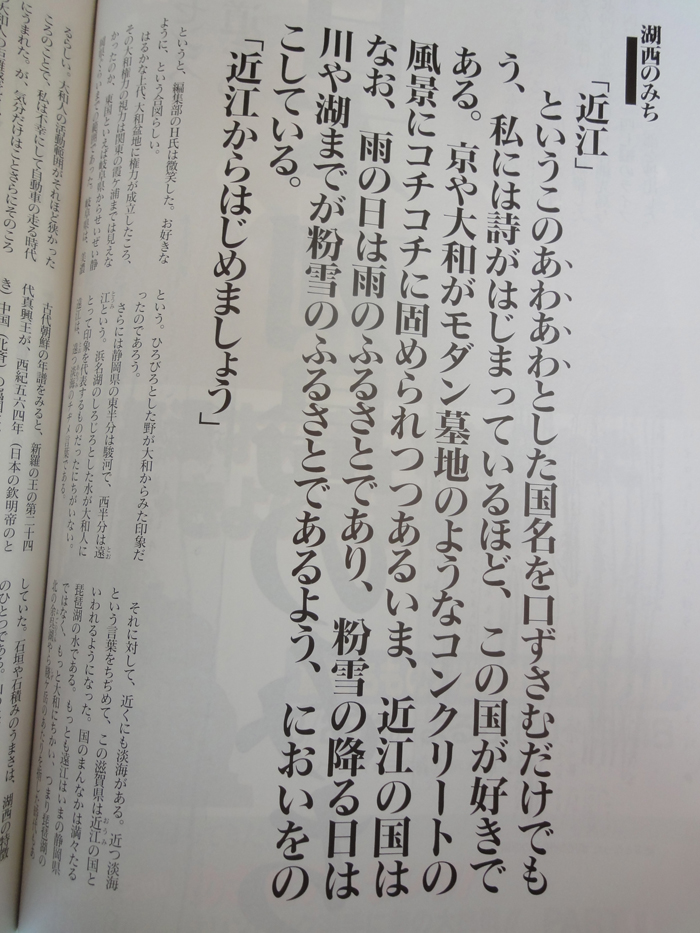 湖西のみち
「近江」
というこのあわあわとした国名を口ずさむだけでも
う、私には詩がはじまっているほど、この国が好きで
ある。京や大和がモダン墓地のようなコンクリートの
風景にコチコチに固められつつあるいま、近江の国は
なお、雨の日は雨のふるさとであり、粉雪の降る日は
川や湖までが粉雪のふるさとであるよう、においをの
こしている。
「近江からはじめましょう」
というと、編集部のH氏は微笑した。お好きな
ように、という合図らしい。
はるかな上代、大和盆地に権力が成立したころ、
その大和権力の視力は関東の霞ヶ浦までは見えな
かったのか、東国といえば岐阜県からせいぜい静
という。ひろびろとした野が大和からみた印象だ
ったのであろう。
さらには静岡県の東半分は駿河で、西半分は遠
江という。浜名湖のしろじろとした水が大和人に
とって印象を代表するものだったにちがいない。
それに対して、近くにも淡海がある。近つ淡海
という言葉をちぢめて、この滋賀県は近江の国と
いわれるようになった。国のまんなかは満々たる
琵琶湖の水である。もっとも遠江はいまの静岡県
ではなく、もっと大和にちかい、つまり琵琶湖の
らしい。大和人の活動範囲がそれほど狭かった
ころのことで、私は不幸にして自動車の走る時代
にうまれた。が、気分だけはことさらにそのころ
古代朝鮮の年譜をみると、新羅の王の第二十四
代真興王が、西紀五六四年（日本の欽明帝のと
き）中国（北斉）の
していた。石垣や石積みのうまさは、湖西の特徴
のひとつである。